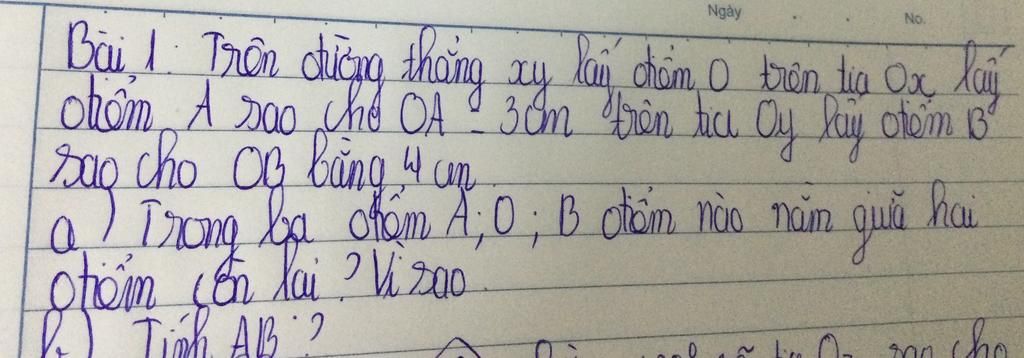 Ngày No.
Bài 1. Trên đường thẳng xy lấy điểm O trên tia Ox lấy
điểm A sao cho OA = 3cm trên tia Oy lấy điểm B
sao cho OB bằng 4 cm
a) Trong ba điểm A; O; B điểm nào nằm giữa hai
điểm còn lại? Vì sao
b.) Tính AB?
sao cho